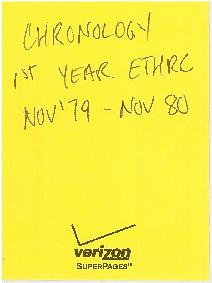 CHRONOLOGY
1ST YEAR ETHRC
NOV '79 - NOV 80
verizon
SUPERPAGES™